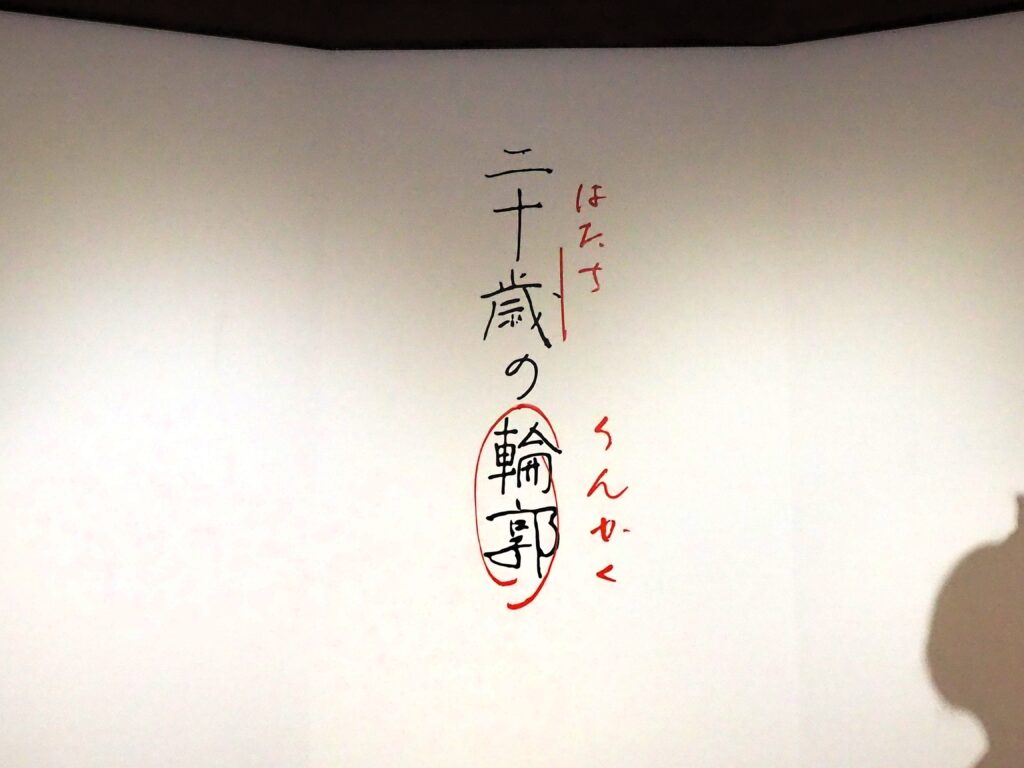 二十歳の輪郭
はたち
りんかく